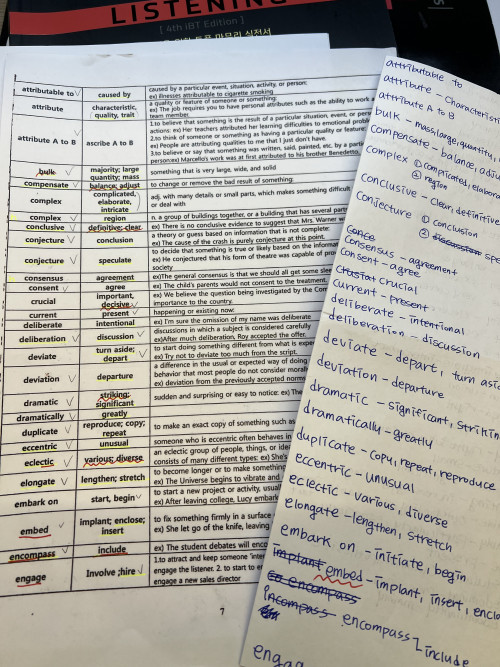 LISTENING
[ 4th iBT Edition ]
attributable to caused by caused by a particular event, situation, activity, or person:
ex) illnesses attributable to cigarette smoking
attribute characteristic, quality, trait a quality or feature of someone or something:
ex) The job requires you to have personal attributes such as the ability to work
team member.
attribute A to B ascribe A to B 1.to believe that something is the result of a particular situation, event, or
actions: ex) Her teachers attributed her learning difficulties to emotional
2.to think of someone or something as having a particular quality or feature:
ex) People are attributing qualities to me that I just don't have.
3.to believe or say that something was written, said, painted, etc. by a
person:ex) Marcello's work was at first attributed to his brother Benedetto,
bulk majority; large quantity; mass something that is very large, wide, and solid
compensate balance; adjust to change or remove the bad result of something:
complex complicated, elaborate, intricate adj. with many details or small parts, which makes something difficult
or deal with
complex region n. a group of buildings together, or a building that has several
conclusive definitive; clear ex) There is no conclusive evidence to suggest that Mrs. Warner
conjecture conclusion a theory or guess based on information that is not complete:
ex) The cause of the crash is purely conjecture at this point.
conjecture speculate to decide that something is true or likely based on the
ex) He conjectured that his form of theatre was capable of
society
consensus agreement ex)The general consensus is that we should all get some
consent agree ex) The child's parents would not consent to the treatment,
crucial important, decisive ex) We believe the question being investigated by the
importance to the country.
current present happening or existing now:
deliberate intentional ex) I'm sure the omission of my name was deliberate
deliberation discussion discussions in which a subject is considered carefully
ex)After much deliberation, Roy accepted the offer.
deviate turn aside; depart to start doing something different from what is
ex) Try not to deviate too much from the script.
deviation departure a difference in the usual or expected way of doing
behavior that most people do not consider
ex) deviation from the previously accepted
dramatic striking; significant sudden and surprising or easy to notice: ex)
dramatically greatly
duplicate reproduce; copy; repeat to make an exact copy of something such as
eccentric unusual someone who is eccentric often behaves in
eclectic various; diverse an eclectic group of people, things, or
consists of many different types: ex) She's
elongate lengthen; stretch to become longer or to make something
ex) The Universe begins to vibrate and
embark on start, begin to start a new project or activity,
ex) After leaving college, Lucy
embed implant; enclose; insert to fix something firmly in a surface
ex) She let go of the knife, leaving
encompass include ex) The student debates will
engage Involve ;hire 1.to attract and keep someone
engage the listener. 2. to start to
engage a new sales director
7
attributable to
attribute - characteristi
attribute A to B
bulk - mass, large, quantity,
compensate - balance,
complex ① complicated,
② region
conclusive - clear, definitive
conjecture ① conclusion
②
consensus - agreement
consent - agree
crucial
current - present
deliberate - intentional
deliberation - discussion
deviate - depart, turn
deviation - departure
dramatic - significant,
dramatically - greatly
duplicate - copy, repeat, reproduce
eccentric - unusual
eclectic - various, diverse
elongate - lengthen, stretch
embark on - initiate, begin
implant embed - implant, insert,
encompass
incompass encompass include
engag